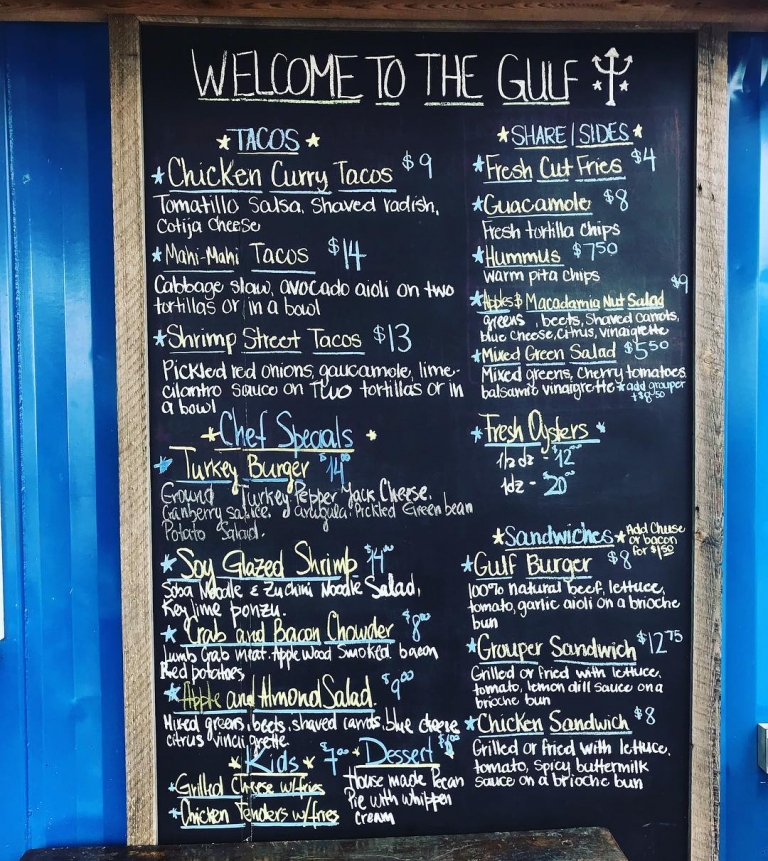 WELCOME TO THE GULF
TACOS
Chicken Curry Tacos $9
Tomatillo Salsa, Shaved radish,
Cotija Cheese
Mahi-Mahi Tacos $14
Cabbage slaw, avocado aioli on two
tortillas or in a bowl
Shrimp Street Tacos $13
Pickled red onions, guacamole, lime-
cilantro sauce on Two tortillas or in
a bowl
Chef Specials
Turkey Burger $14⁰⁰
Ground Turkey, Pepper Jack Cheese,
Cranberry sauce, arugula, Pickled Green bean
Potato Salad.
Soy Glazed Shrimp $14⁰⁰
Soba Noodle & Zuchini Noodle Salad,
Key lime ponzu.
Crab and Bacon Chowder $8⁰⁰
Lumb Crab meat. Apple Wood Smoked bacon
Red potatoes
Apple and Almond Salad $9⁰⁰
Mixed greens, beets, shaved carrots, blue cheese
citrus
Kids $7⁰⁰
Grilled Cheese w/fries
Chicken Tenders w/fries
Dessert
House made Pecan
Pie with whippen
cream
SHARE/SIDES
Fresh Cut Fries $4
Guacamole $8
Fresh tortilla chips
Hummus $7⁵⁰
warm pita chips
Apples $ Macadamia Nut Salad $9
greens, beets, Shaved carrots,
blue cheese, citrus, vinaigrette
Mixed Green Salad $5⁵⁰
Mixed greens, cherry tomatoes
balsamic vinaigrette *add grouper
+$8⁵⁰
Fresh Oysters
1/2 dz - $12⁰⁰
1dz - $20⁰⁰
Sandwiches
Add Cheese
or bacon
for $1⁵⁰
Gulf Burger $8
100% natural beef, lettuce,
tomato, garlic aioli on a brioche
bun
Grouper Sandwich $12⁷⁵
Grilled or fried with lettuce,
tomato, lemon dill sauce on a
brioche bun
Chicken Sandwich $8
Grilled or fried with lettuce,
tomato, spicy buttermilk
sauce on a brioche bun